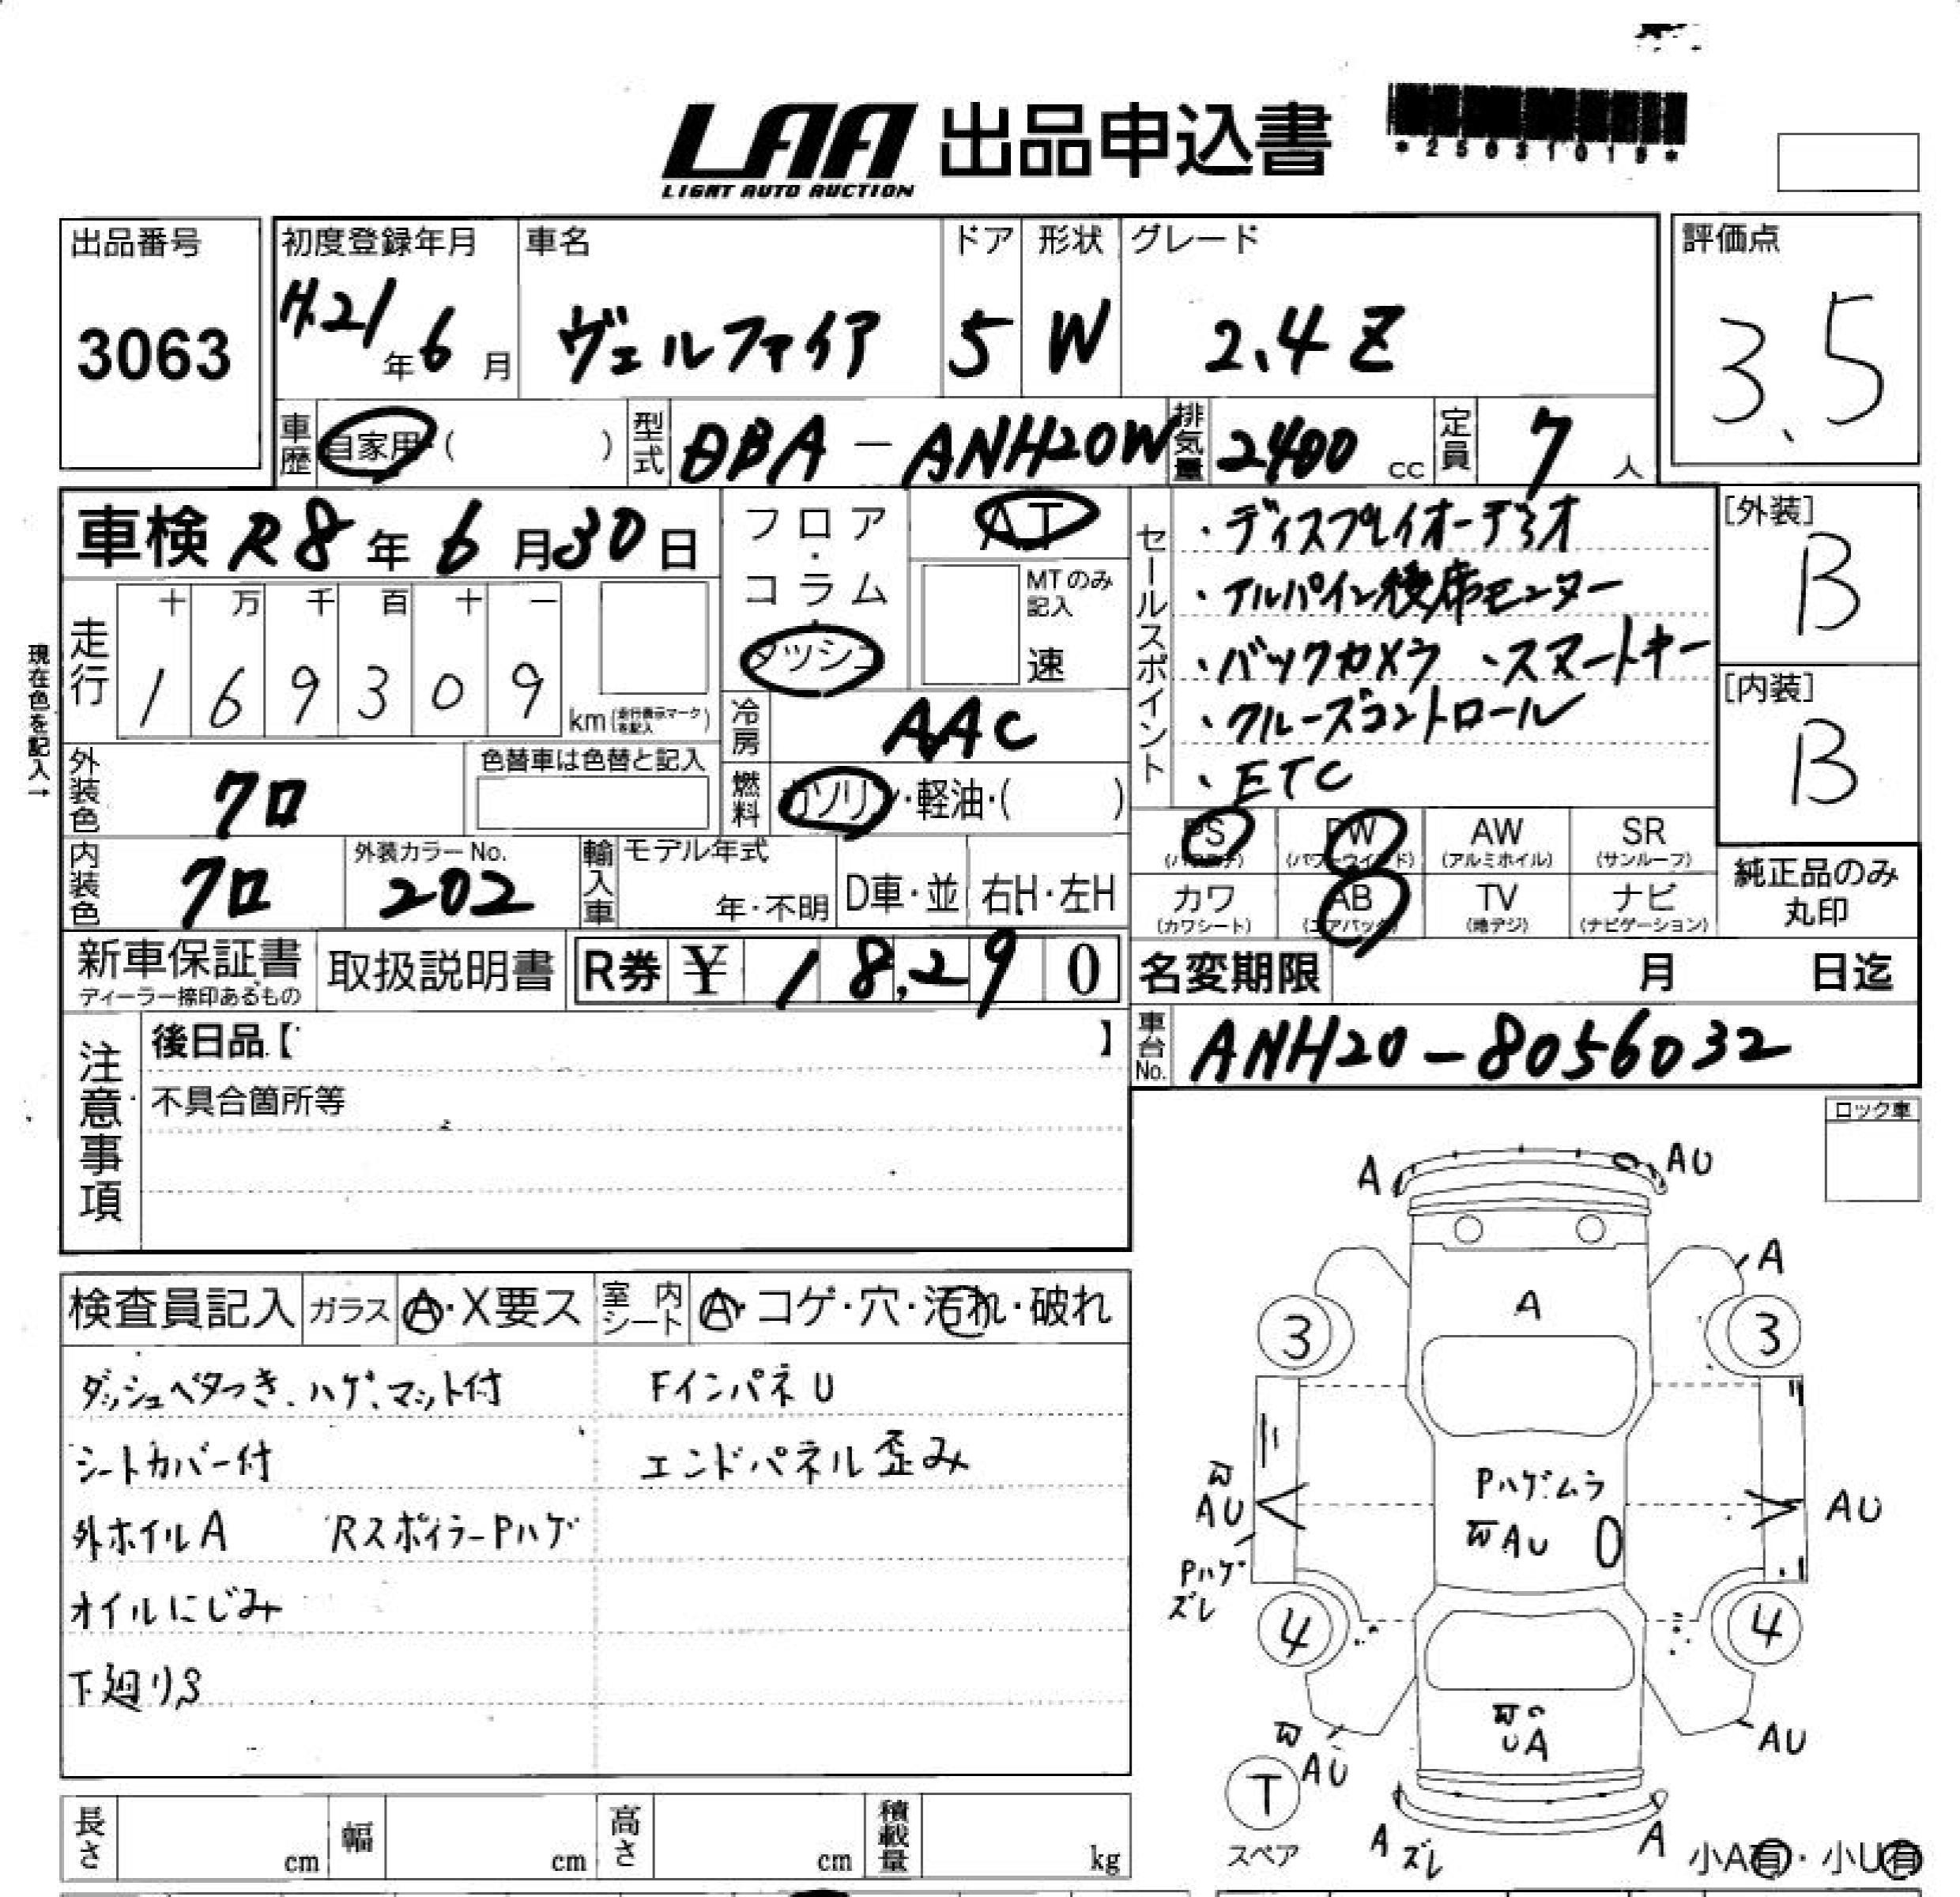 LAA 出品申込書
LIGHT AUTO AUCTION
*25031015*
出品番号
3063
初度登録年月
H.21年6月
車名
ヴェルファイア
ドア
5
形状
W
グレード
2.4 Z
評価点
3.5
車歴
自家用・( )
型式
DBA-ANH20W
排気量
2400 cc
定員
7人
車検 R8年6月30日
フロア・コラム・ダッシュ
AT
MTのみ記入
速
セールスポイント
・ディスプレイオーディオ
・アルパイン後席モニター
・バックカメラ ・スマートキー
・クルーズコントロール
・ETC
[外装]
B
[内装]
B
現在色を記入→
走行
十 万 千 百 十 一
1 6 9 3 0 9
km(走行表示マークを記入)
冷房
AAC
外装色
クロ
色替車は色替と記入
燃料
ガソリン・軽油・( )
PS (パワステ)
PW (パワーウインド)
AW (アルミホイル)
SR (サンルーフ)
カワ (カワシート)
AB (エアバック)
TV (地デジ)
ナビ (ナビゲーション)
純正品のみ
丸印
内装色
クロ
外装カラーNo.
202
輸入車
モデル年式
年・不明
D車・並
右H・左H
新車保証書
ディーラー捺印あるもの
取扱説明書
R券 ¥ 18,290
名変期限 月 日迄
注意事項
後日品【 】
不具合箇所等
車台No.
ANH20-8056032
ロック車
検査員記入
ガラス
A・X要ス
室内シート
A・コゲ・穴・汚れ・破れ
ダッシュベタつき、ハゲ、マット付
FインパネU
シートカバー付
エンドパネル歪み
外ホイルA
RスポイラーPハゲ
オイルにじみ
下廻りS
A
AU
A
A
3
3
Pハゲムラ
AU
AU
AU
Pハゲ
ズレ
4
4
A
AU
AU
T
スペア
A ズレ
A
小A有・小U有
長さ cm
幅 cm
高さ cm
積載量 kg